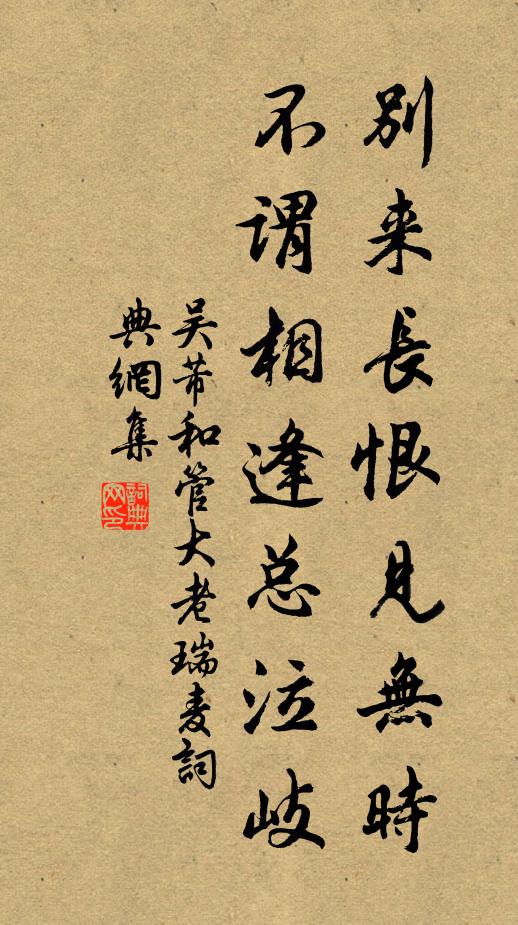 別来長恨見無時
不謂相逢总泣岐
吴芾和管大老瑞麦詞
典網集
詞典网印